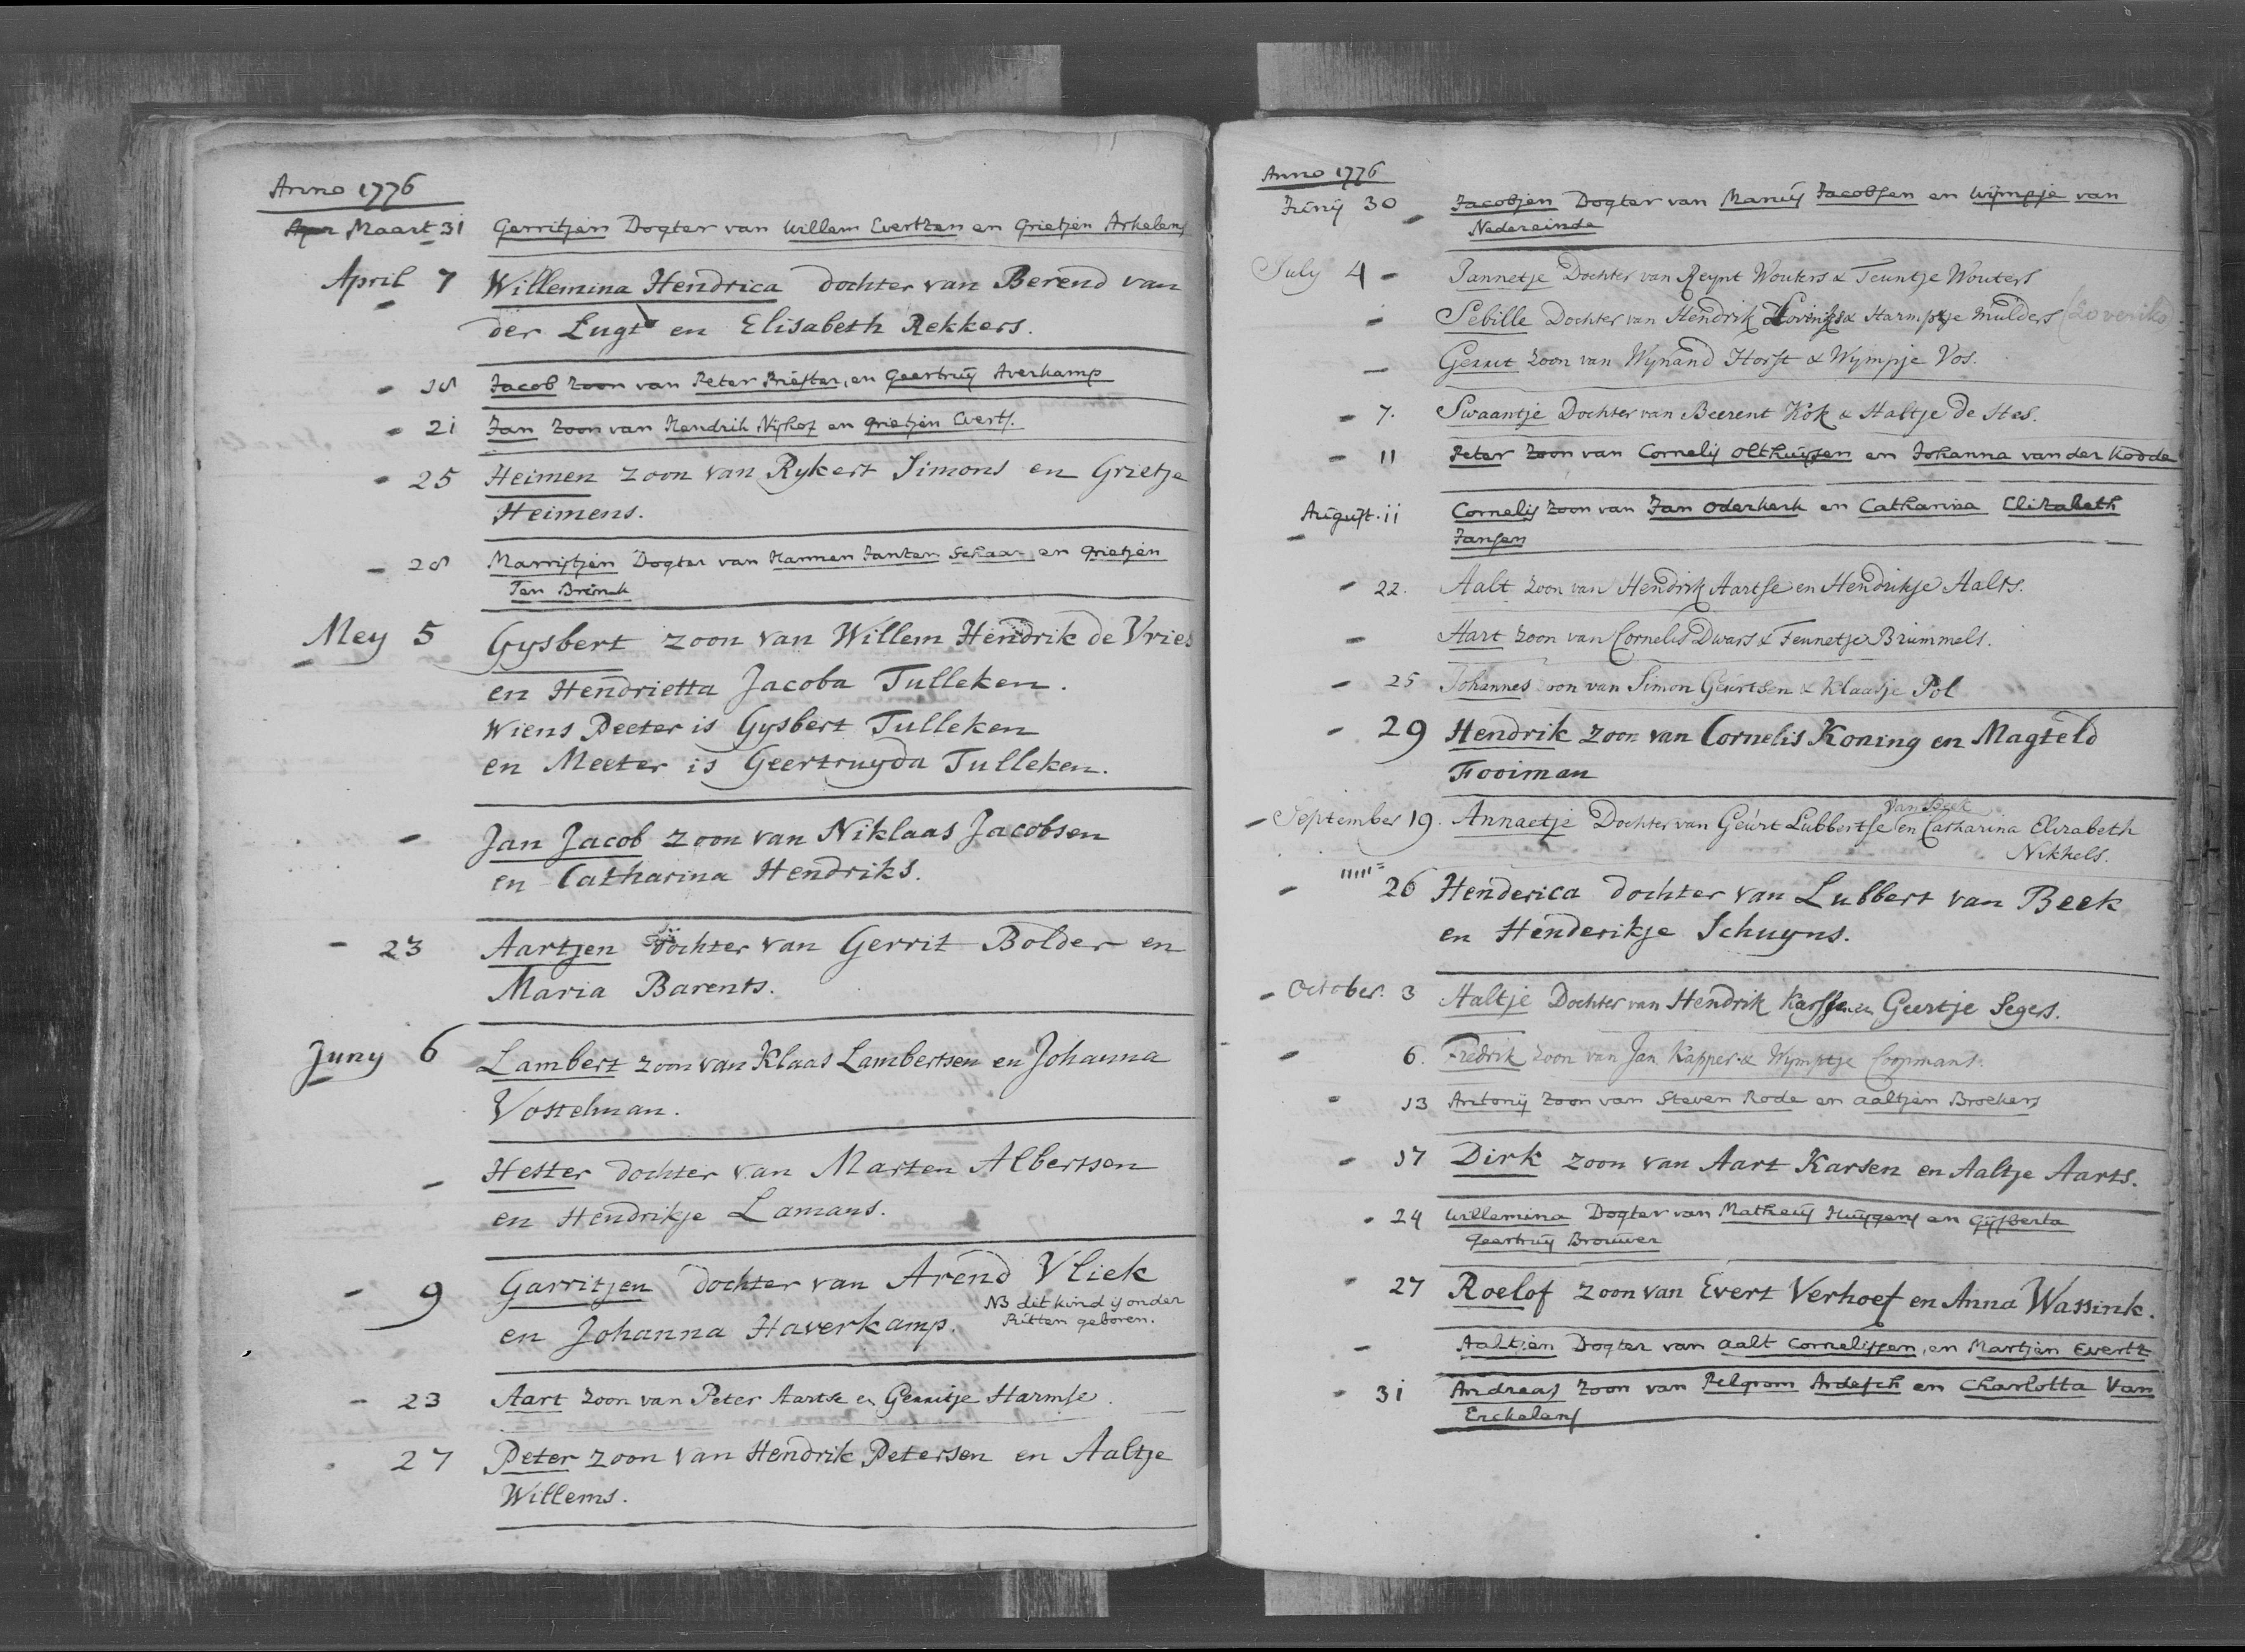 Anno 1776
Maart 31 Gerritjen Dogter van Willem Evertzen en Grietjen Arkelens
April 7 Willemina Hendrica dochter van Berend van
der Lugt en Elisabeth Rekkers.
- 18 Jacob Zoon van Peter Priester, en Geertruÿ Averkamp
- 21 Jan Zoon van Hendrik Nijhof en Grietjen Everts.
- 25 Heimen zoon van Rykert Simons en Grietje
Heimens.
- 28 Marritjen Dogter van Harmen Jantzen Schaar en Grietjen
Ten Brink
Mey 5 Gysbert zoon van Willem Hendrik de Vries
en Hendrietta Jacoba Tulleken.
Wiens Peeter is Gysbert Tulleken
en Meeter is Geertruyda Tulleken.
- Jan Jacob zoon van Niklaas Jacobsen
en Catharina Hendriks.
- 23 Aartjen dochter van Gerrit Bolder en
Maria Barents.
Juny 6 Lambert zoon van Klaas Lambertsen en Johanna
Vostelman.
- Hester dochter van Marten Albertson
en Hendrikje Lamans.
- 9 Garritjen dochter van Arend Vliek
en Johanna Haverkamp.
NB dit kind is onder
Putten geboren.
- 23 Aart Zoon van Peter Aartse en Gerritje Harmse.
27 Peter zoon van Hendrik Petersen en Aaltje
Willems.
Anno 1776
Junÿ 30 Jacobjen Dogter van Manus Jacobsen en Wijmpje van
Nedereinde
July 4 - Jannetje Dochter van Reynt Wouters & Teuntje Wouters
- Sebille Dochter van Hendrik Hovings & Harmptje Mulders (Loveriks)
- Gerrit Zoon van Wynand Horst & Wympje Vos.
- 7. Swaantje Dochter van Beerent Kok & Haltje de Stes.
- 11 Peter Zoon van Cornelis Olthuysen en Johanna van der Kodde
August. 11 Cornelis Zoon van Jan Oderkerk en Catharina Elizabeth
Jansen
- 22. Aalt Zoon van Hendrik Aartse en Hendrikje Aalts.
- Aart Zoon van Cornelis Dwars & Teunetje Brummels.
- 25 Johannes Zoon van Simon Geurtsen & Klaasje Pol
- 29 Hendrik zoon van Cornelis Koning en Magteld
Fooiman
- September 19. Annaetje Dochter van Geurt Lubbertse van Beek en Catharina Elizabeth
Nikkels.
- 26 Henderica dochter van Lubbert van Beek
en Henderikje Schuyns.
- October. 3 Aaltje Dochter van Hendrik Karssen en Geertje Segers.
- 6. Fredrik Zoon van Jan Kapper & Wymptje Coopmans.
- 13 Antonij Zoon van Steven Rode en Aaltjen Broekers
- 17 Dirk zoon van Aart Karsen en Aaltje Aarts.
- 24 Willemina Dogter van Matheus Huygens en Gijsberta
Geertruÿ Brouwer
- 27 Roelof zoon van Evert Verhoef en Anna Wassink.
- Aaltjen Dogter van Aalt Cornelissen, en Martjen Evertz
- 31 Andreas Zoon van Pelgrom Ardesch en Charlotta Van
Erckelens